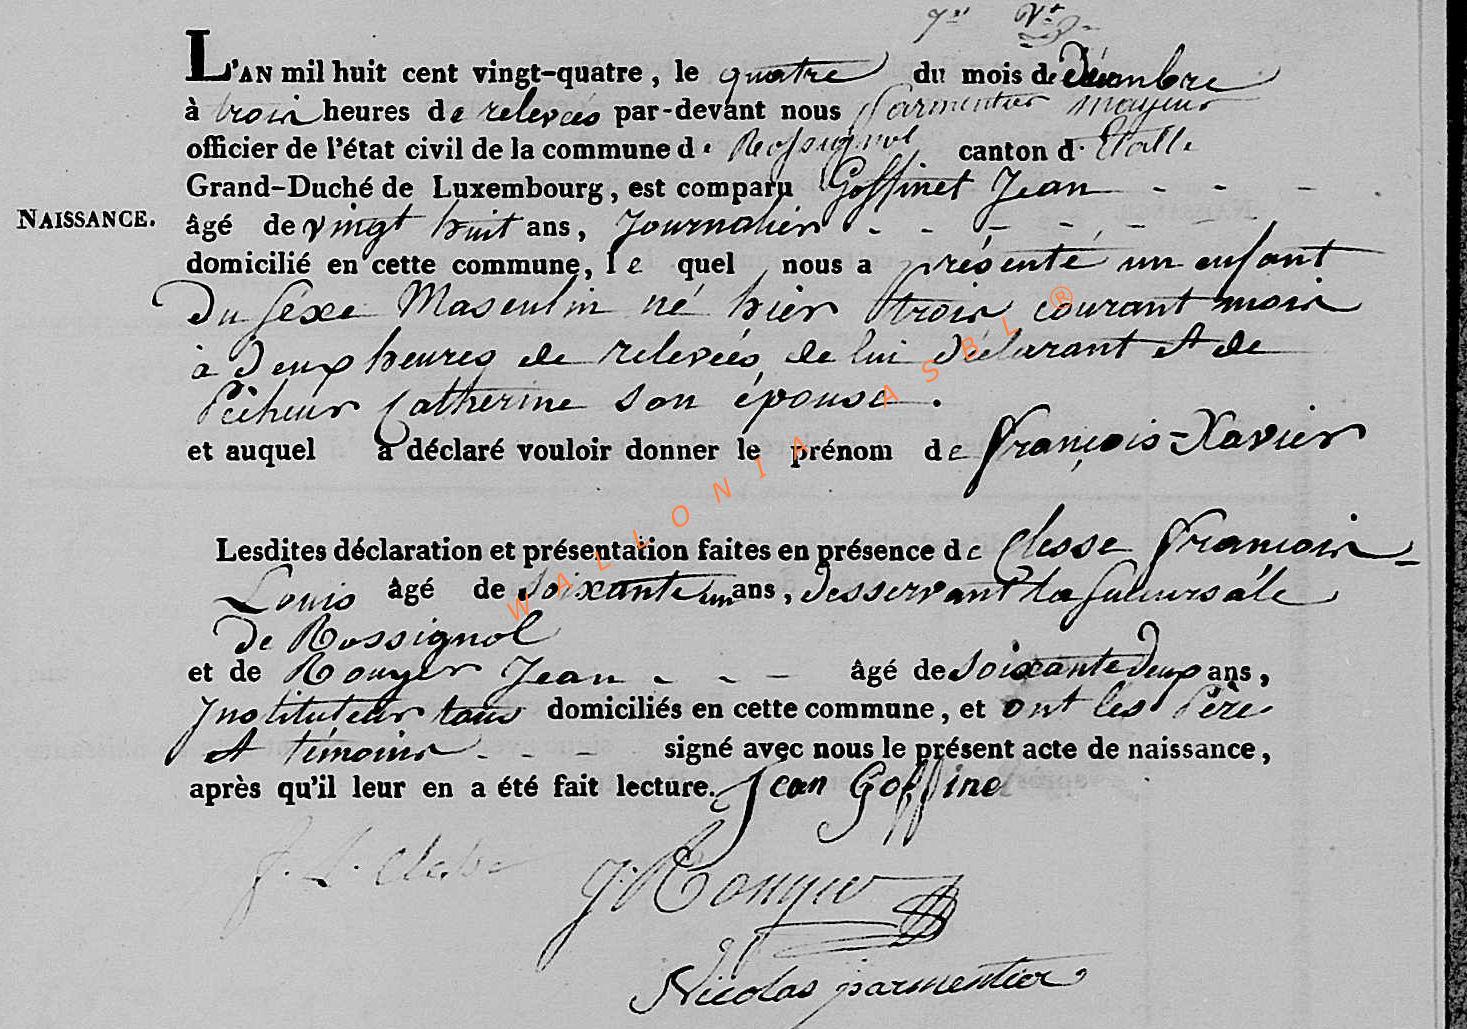 L'AN mil huit cent vingt-quatre, le quatre du mois de Décembre
à trois heures de relevées par-devant nous Parmentier mayeur
officier de l'état civil de la commune de Rossignol canton d'Etalle
Grand-Duché de Luxembourg, est comparu Goffinet Jean - - -
NAISSANCE. âgé de vingt huit ans, Journalier - - - - - -
domicilié en cette commune, le quel nous a présenté un enfant
Du séxe Masculin né hier trois courant mois
à Deux heures de relevées, de lui déclarant et de
Pêcheur Catherine son épouse.
et auquel a déclaré vouloir donner le prénom de françois-Xavier
Lesdites déclaration et présentation faites en présence de Clesse françois-
Louis âgé de Soixante un ans, Desservant la Succursale
De Rossignol
et de Rouyer Jean - - - âgé de soixante Deux ans,
Instituteur tous domiciliés en cette commune, et ont les Père
et témoins - - - signé avec nous le présent acte de naissance,
après qu'il leur en a été fait lecture. Jean Goffinet
f. L. Clesse J. Rouyer
Nicolas parmentier
WALLONIA ASBL ®